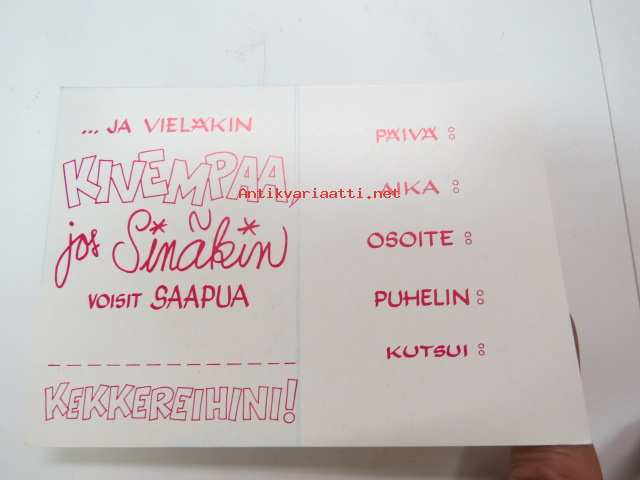 ... JA VIELÄKIN
KIVEMPAA,
jos Sinäkin
VOISIT SAAPUA
KEKKEREIHINI!
PÄIVÄ :
AIKA :
OSOITE :
PUHELIN :
KUTSUI :
Antikvariaatti.net